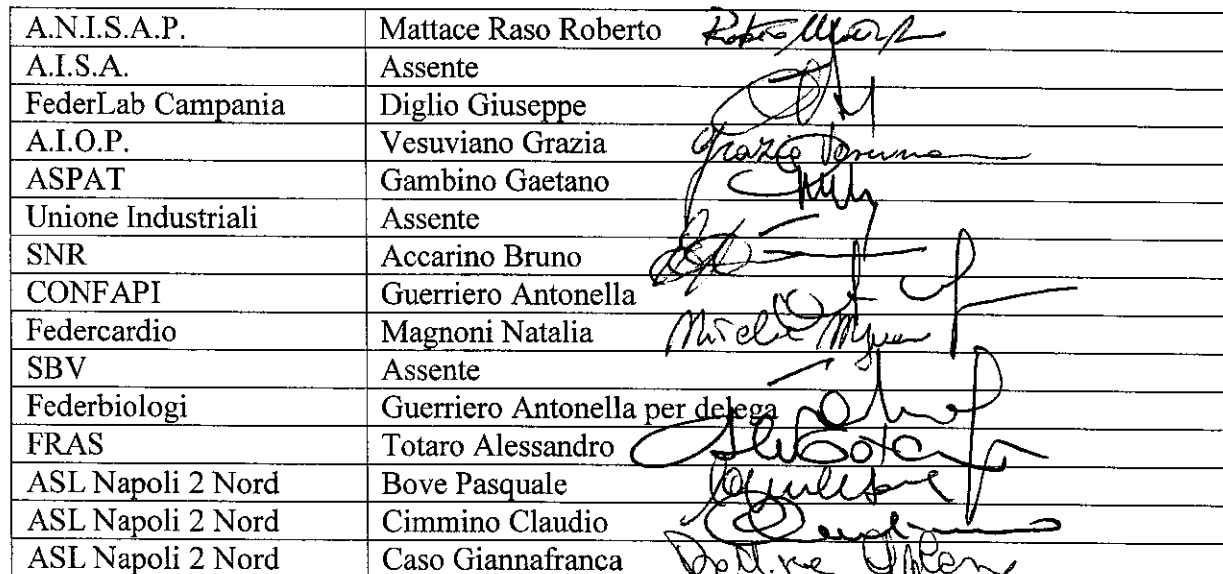 A.N.I.S.A.P. Mattace Raso Roberto
A.I.S.A. Assente
FederLab Campania Diglio Giuseppe
A.I.O.P. Vesuviano Grazia
ASPAT Gambino Gaetano
Unione Industriali Assente
SNR Accarino Bruno
CONFAPI Guerriero Antonella
Federcardio Magnoni Natalia
SBV Assente
Federbiologi Guerriero Antonella per delega
FRAS Totaro Alessandro
ASL Napoli 2 Nord Bove Pasquale
ASL Napoli 2 Nord Cimmino Claudio
ASL Napoli 2 Nord Caso Giannafranca